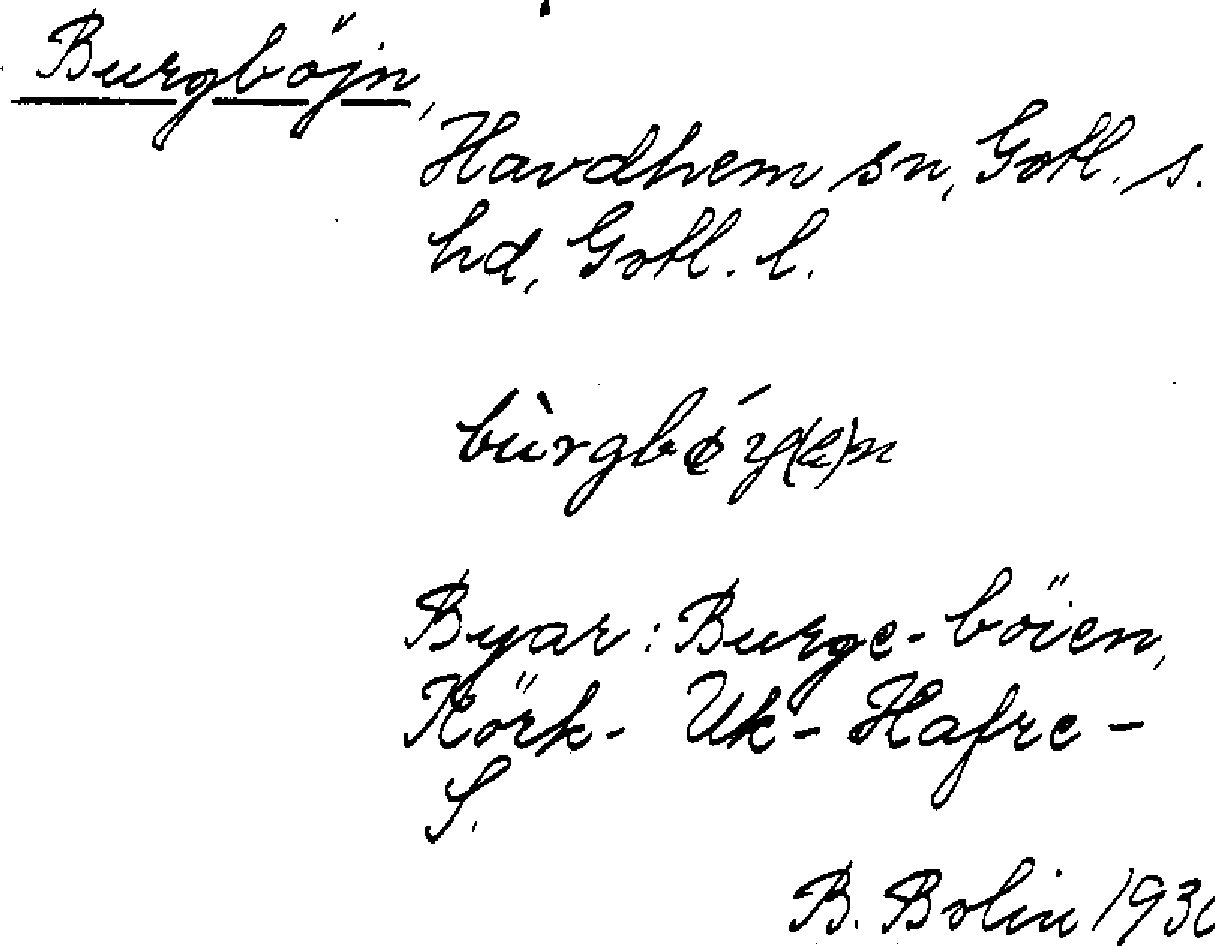 Burgböjn,
Havdhem sn, Gotl. s.
hd, Gotl. l.
bùrgbǿy(e)n
Byar: Burge-böien,
Körk- Uk- Hafre-
S.
B. Bolin 193